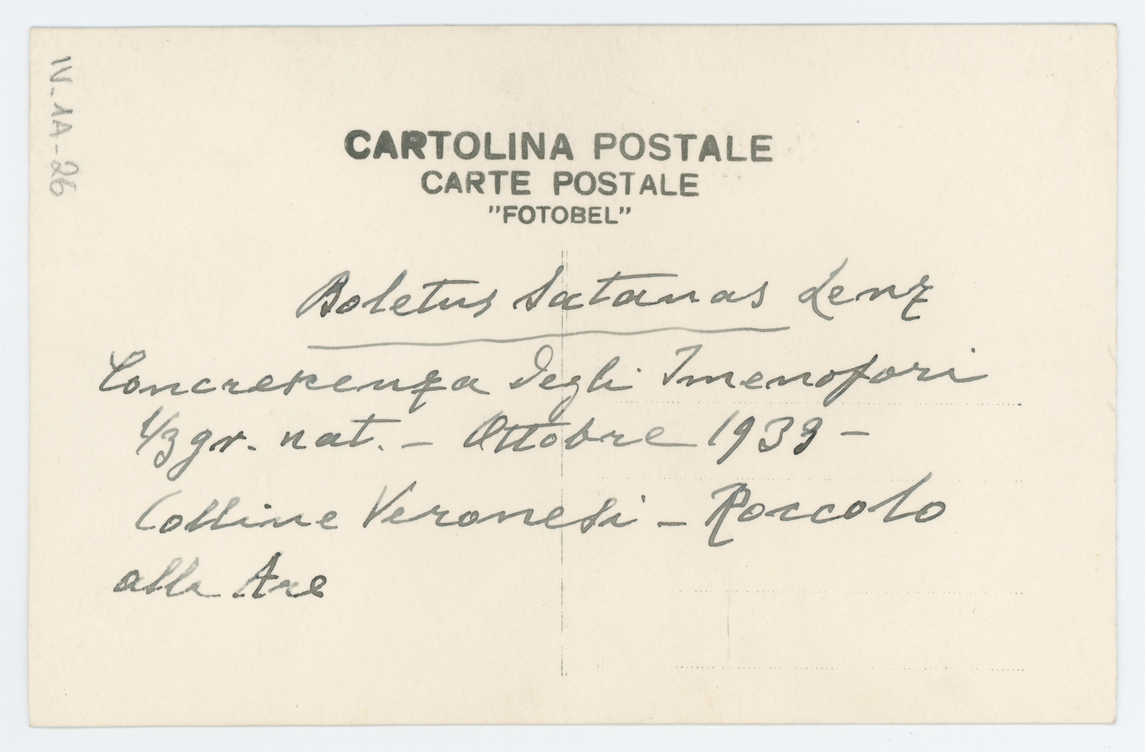 IV-1A-26
CARTOLINA POSTALE
CARTE POSTALE
"FOTOBEL"
Boletus Satanas Lenz
Concrescenza degli Imenofori
1/3 gr. nat. - Ottobre 1939 -
Colline Veronesi - Roccolo
alle Are